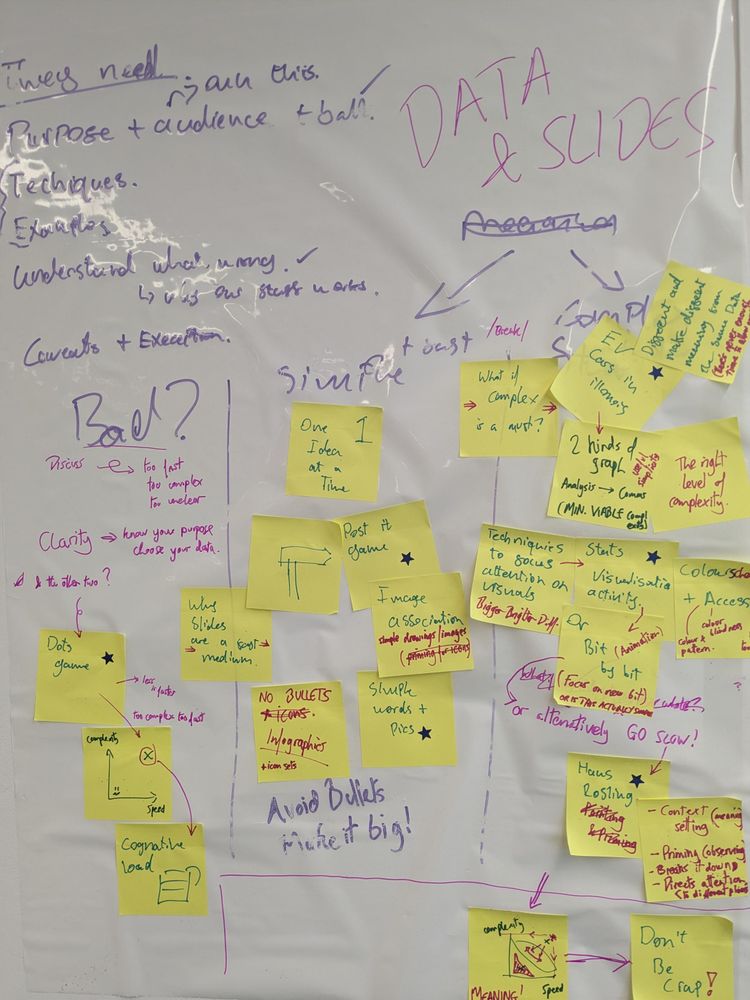 They need
this.
Purpose + audience + ball.
Techiques.
Examples
Understand what wrong.
↳ why our stuff works.
+ Execution.
DATA
& SLIDES
Bad?
Discuss
too fast
too complex
too unclear
Clarity → know your purpose
choose your data.
& the other two?
Dots
game
less
is faster
Too complex too fast
complexity
speed
Cognative
load
Simple
+ fast
/Break/
One
Idea
at a
Time
1
Post it
game
Image
association
simple drawings/images
(priming for icons)
Why
Slides
are a fast
medium.
NO BULLETS
+ icons.
Infographics
+ icon sets
Simple
words +
Pics
Avoid Bullets
Make it big!
What if
complex
is a must?
EV
Cars in
illinois
Different and
make different
meaning from
the same Data
2 kinds of
graph
useful
simplicity
Analysis → Comms
(MIN. VIABLE
The right
level of
complexity.
Techniques
to focus
attention on
visuals
Bigger Brighter Diff
Stats
Visualisatio
activity.
Colour
+ Access
colour
blindness
pattern.
Or
Bit (Animation)
by bit
(Focus on new bit)
or alternatively GO SLOW!
Hans
Rosling
& Priming
- Context (meani
setting
- Priming (observing
- Breaks it down
- Directs attention
to different places
complexity
MEANING!
Speed
Don't
Be
Crap!